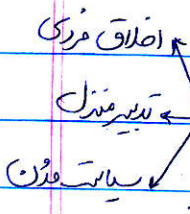 اخلاق فردی
تدبیر منزل
سیاست مدن